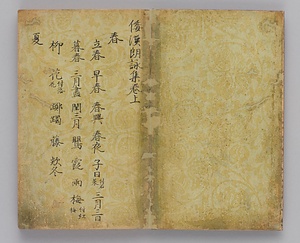 倭漢朗詠集巻上
春
立春 早春 春興 春夜 子日付若菜 三月三日
暮春 三月盡 閏三月 鶯 霞 雨 梅付紅梅
柳 花 躑躅 藤 款冬
夏